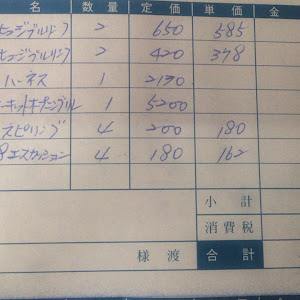 名 数量 定価 単価 金
ヒュージブルリンク 2 650 585
ヒュージブルリンク 2 420 378
ハーネス 1 2130
1 5200
スピリング 4 200 180
エスカッション 4 180 162
小計
消費税
様渡 合計